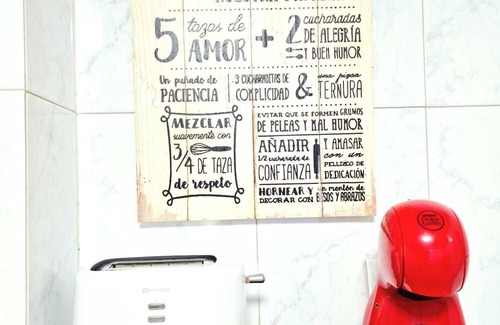 5 tazas de AMOR + 2 cucharadas DE ALEGRÍA Y BUEN HUMOR
Un puñado de PACIENCIA
3 CUCHARADITAS DE COMPLICIDAD
& una pizca TERNURA
MEZCLAR
suavemente con
3/4 DE TAZA
de respeto
EVITAR QUE SE FORMEN GRUNOS
DE PELEAS Y MAL HUMOR
AÑADIR
1/2 cucharada de
CONFIANZA
Y AMASAR
con un
PELLIZCO DE
DEDICACIÓN
HORNEAR Y un montón de
DECORAR CON BESOS Y ABRAZOS